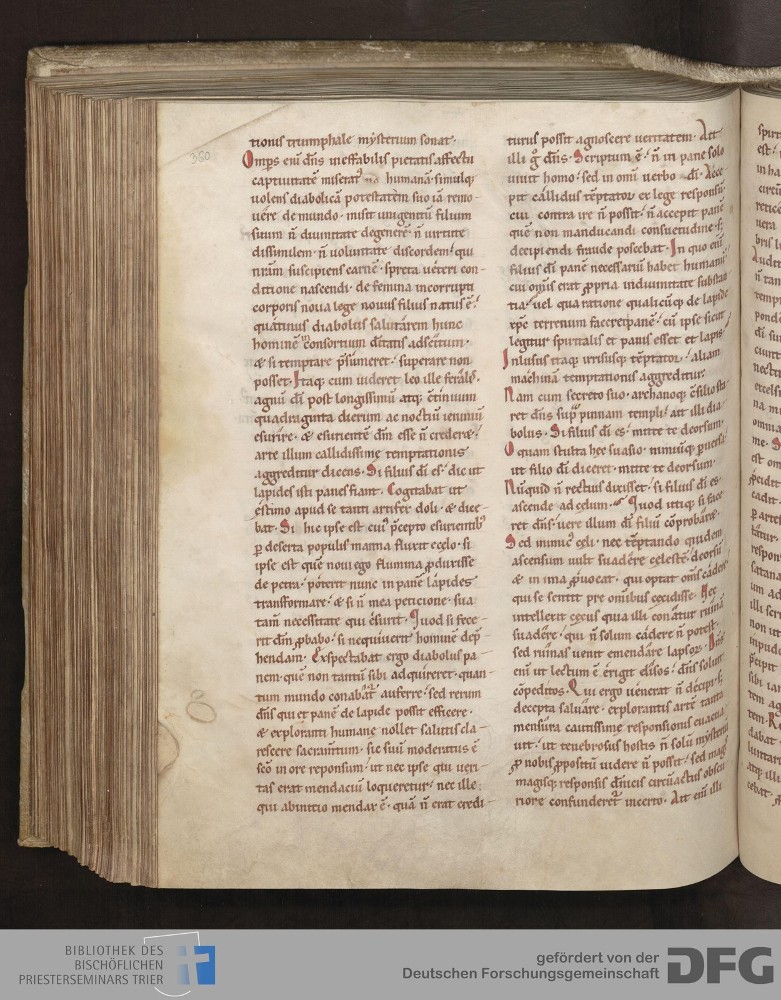 380
tionis triumphale mysterium sonat.
Omps eni dns ineffabilis pietatis affectu
captiuitate miserat humana. simulq;
uolens diabolica potestatem suo ia remo-
uere de mundo. misit unigenitu filium
suum n diuinitate degenere. n uirtute
dissimilem. n uoluntate discordem. qui
nram suscipiens carne. spreta ueteri con-
ditione nascendi. de femina incorrupti
corporis noua lege nouus filius natus e.
quatinus diabolus salutarem hunc
homine consortium ditatis adscitum.
& si temptare psumeret. superare non
posset. Itaq; cum uideret leo ille feralis.
agnu di post longissimu atq; etinuum
quadraginta dierum ac noctiu ieiuniu
esurire. & esuriente dm esse n credere.
arte illum callidissime temptationis
aggreditur dicens. Si filius di es. dic ut
lapides isti panes fiant. Cogitabat ut
estimo apud se tanti artifex doli. & dice-
bat. Si hic ipse est cui' pcepto esurientib'
p deserta populis manna fluxit e celo. si
ipse est que noui ego flumina pduxisse
de petra. poterit nunc in pane lapides
transformare. & si n mea peticione. sua
tam necessitate qui esurit. Quod si fece-
rit dm pbabo. si nequiuerit homine dep-
hendam. Exspectabat ergo diabolus pa-
nem. que non tantu sibi adquireret. quan-
tum mundo conabat auferre. sed rerum
dns qui et pane de lapide possit efficere.
& exploranti humane nollet salutis cla-
rescere sacramtum. sic suu moderatus e
sco in ore reponsum. ut nec ipse qui ueri-
tas erat mendaciu loqueretur. nec ille
qui ab initio mendax e. qua n erat credi-
turus possit agnoscere ueritatem. Ait
illi g dns. Scriptum e. n in pane solo
uiuit homo. sed in omi uerbo di. Acce
pit callidus teptator ex lege responsu.
cui contra ire n possit. n accepit pane
que non manducandi consuetudine. s;
decipiendi fraude poscebat. In quo eni
filius di pane necessariu habet humanu.
cui omis erat ppria in diuinitate substan
tia. uel qua ratione qualicuq; de lapide
xpc terrenum faceret pane. cu ipse sicut
legitur spiritalis et panis esset et lapis.
Inlusus itaq; irrisusq; teptator. aliam
machina temptationis aggreditur.
Nam cum secreto suo. archanoq; c silio sta
ret dns sup pinnam templi. ait illi dia-
bolus. Si filius di es. mitte te deorsum.
O quam stulta hec suasio. nimiuq; puersa
ut filio di diceret. mitte te deorsum.
Nuquid n rectius dixisset. si filius di es
ascende ad celum. Quod utiq; si face
ret dns. uere illum di filiu coprobare.
Sed inimic' celi. nec teptando quidem
ascensum uult suadere celeste. deorsu
& in ima puocat. qui optat oms cadere
qui se sentit pre omnibus cecidisse. Nec
intellexit cecus quia illi conatur ruina
suadere. qui n solum cadere n potest.
sed ruinas uenit emendare lapsor. Dns
eni ut lectum e. erigit elisos. dns soluit
copeditos. Qui ergo uenerat n decipi. s;
decepta saluare. explorantis arte tanta
mensura cautissime responsionis euacua
uit. ut tenebrosus hostis n solu mysterium
p nobis ppositu uidere n possit. sed magis
magisq; responsis dnicis circuactus obscu
riore confunderet incerto. Ait eni illi
BIBLIOTHEK DES
BISCHÖFLICHEN
PRIESTERSEMINARS TRIER
gefördert von der
Deutschen Forschungsgemeinschaft
DFG